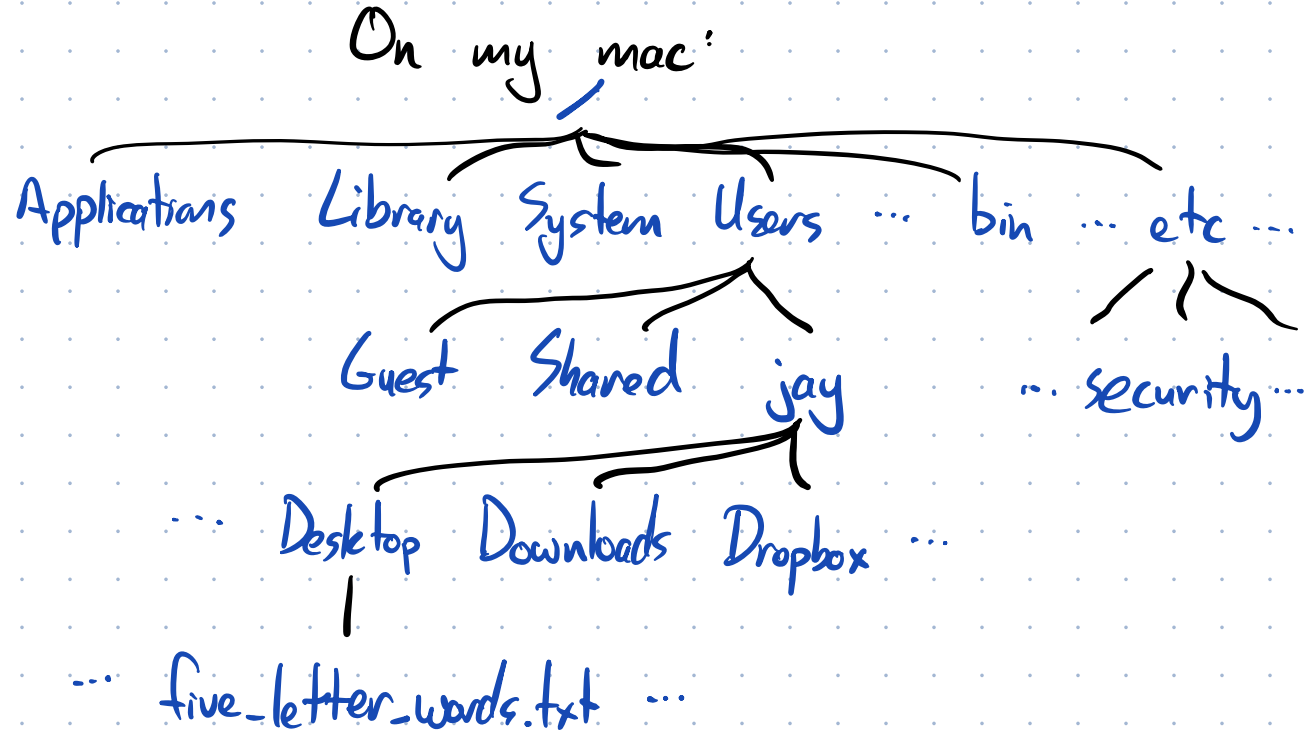 On my mac:
/
Applications Library System Users ... bin ... etc ...
Guest Shared jay ... security ...
... Desktop Downloads Dropbox ...
... five_letter_words.txt ...